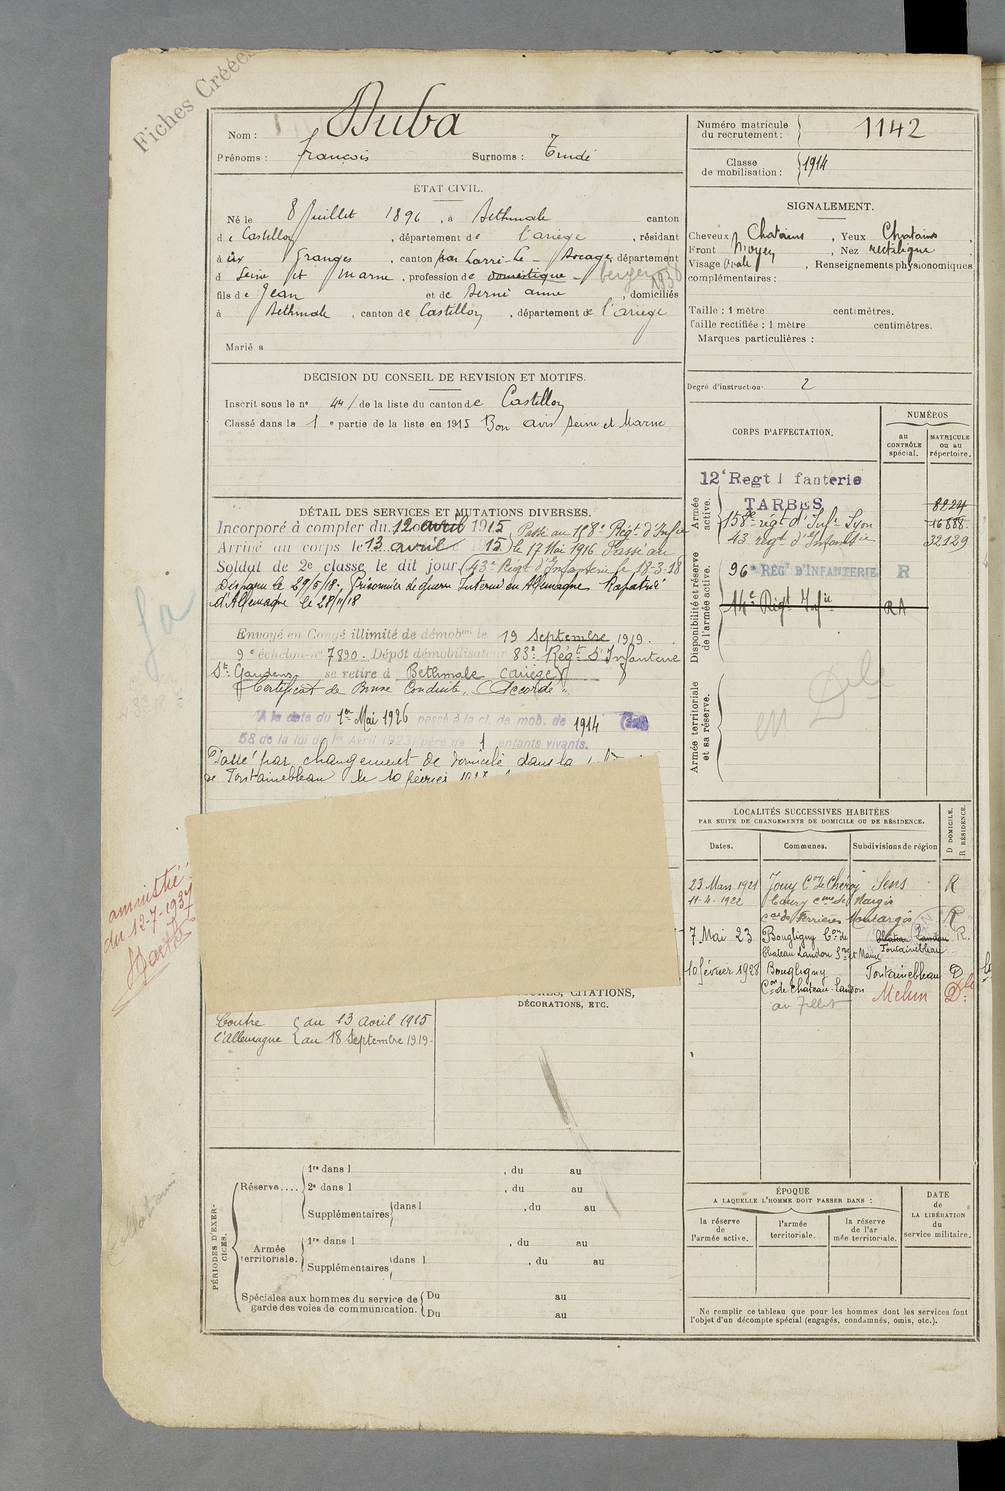 Fiches Créées
Nom : Buba
Prénoms : François Surnoms :
Numéro matricule du recrutement : 1142
Classe de mobilisation : 1914
ÉTAT CIVIL.
Né le 8 Juillet 1896, à Bethmale canton
de Castillon, département de l'ariège, résidant
à Granges, canton par Lorri-le-Bocage, département
d Seine et Marne, profession de domestique berger
fils de Jean et de anne, domiciliés
à Bethmale, canton de Castillon, département de l'ariège
Marié à
SIGNALEMENT.
Cheveux Chatains, Yeux Chatains
Front Moyen, Nez rectiligne
Visage Ovale, Renseignements physionomiques
complémentaires :
Taille : 1 mètre centimètres.
Taille rectifiée : 1 mètre centimètres.
Marques particulières :
Degré d'instruction 2
DECISION DU CONSEIL DE REVISION ET MOTIFS.
Inscrit sous le n° 44 de la liste du canton de Castillon
Classé dans la 1e partie de la liste en 1915 Bon avis Seine et Marne
DÉTAIL DES SERVICES ET MUTATIONS DIVERSES.
Incorporé à compter du 12 avril 1915 Passé au 158e Régt d'Infie
Arrivé au corps le 13 avril 1915 le 17 Mai 1916 Passé au
Soldat de 2e classe le dit jour 43e Régt d'Infanterie le 18-3-18
Disparu le 29/5/18, Prisonnier de guerre Interné en Allemagne Rapatrié
d'Allemagne le 28/11/18
Envoyé en Congé illimité de démobon le 19 Septembre 1919.
9e échelon n° 7890. Dépôt démobilisateur 83e Régt d'Infanterie
St Gaudens, se retire à Bethmale (ariège)
Certificat de Bonne Conduite "Accordé".
A la date du 1er Mai 1926 passé à la cl. de mob. de 1914
58 de la loi du 1er Avril 1923) père de 1 enfants vivants.
Passé par changement de domicile dans la
de Fontainebleau le 10 février
amnistié
du 12-7-1937
CORPS D'AFFECTATION.
NUMÉROS
au CONTRÔLE spécial.
MATRICULE ou au répertoire.
Armée active.
12e Regt I fanterie
TARBES 8224
158e régt d'Infie Lyon 16888
43 régt d'Infanterie 32129
Disponibilité et réserve de l'armée active.
96e RÉGt D'INFANTERIE R
14e Régt Infie RA
Armée territoriale et sa réserve.
LOCALITÉS SUCCESSIVES HABITÉES
PAR SUITE DE CHANGEMENTS DE DOMICILE OU DE RÉSIDENCE.
Dates. Communes. Subdivisions de région D DOMICILE. R RÉSIDENCE.
23 Mars 1921 Jouy Con de Chéroy Sens R
11-4-1922 Corbeilles
con de Ferrières Montargis R
7 Mai 23 Bougligny Con de Château Landon R.
Chateau Landon Sne et Marne Fontainebleau
10 février 1928 Bougligny Fontainebleau D
Con de Chateau-Landon Melun D.
CITATIONS,
DÉCORATIONS, ETC.
Contre du 13 avril 1915
l'Allemagne au 18 Septembre 1919.
PÉRIODES D'EXERCICES.
Réserve.... 1re dans l , du au
2e dans l , du au
Supplémentaires dans l , du au
Armée territoriale. 1re dans l , du au
Supplémentaires dans l , du au
Spéciales aux hommes du service de garde des voies de communication. Du au
Du au
ÉPOQUE
A LAQUELLE L'HOMME DOIT PASSER DANS :
la réserve de l'armée active.
l'armée territoriale.
la réserve de l'ar mée territoriale.
DATE de LA LIBÉRATION du service militaire.
Ne remplir ce tableau que pour les hommes dont les services font
l'objet d'un décompte spécial (engagés, condamnés, omis, etc.).